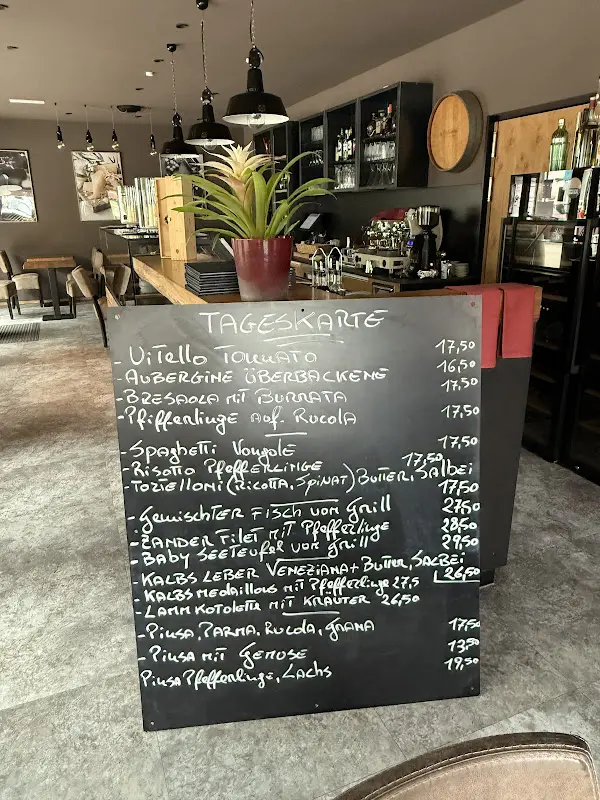 TAGESKARTE
- Vitello Tonnato 17,50
- AUBERGINE ÜBERBACKENE 16,50
- BRESAOLA mit BURRATA 17,50
- Pfifferlinge auf Rucola 17,50
- Spaghetti Vongole 17,50
- Risotto Pfefferlinge 17,50
- Toztelloni (Ricotta, Spinat) Butter, Salbei 17,50
- Gemischter Fisch vom Grill 27,50
- ZANDER Filet mit Pfefferlinge 28,50
- BABY SEETEUFEL vom Grill 29,50
- KALBS LEBER VENEZIANA + Butter, SALBEI 26,50
- KALBS MEDAILLONS mit Pfifferlinge 27,5
- LAMM KOTOLETTE MIT KRÄUTER 26,50
- Pinsa, PARMA, RUCOLA, GRANA 17,50
- Pinsa mit GEMÜSE 13,50
Pinsa Pfefferlinge, LACHS 19,50